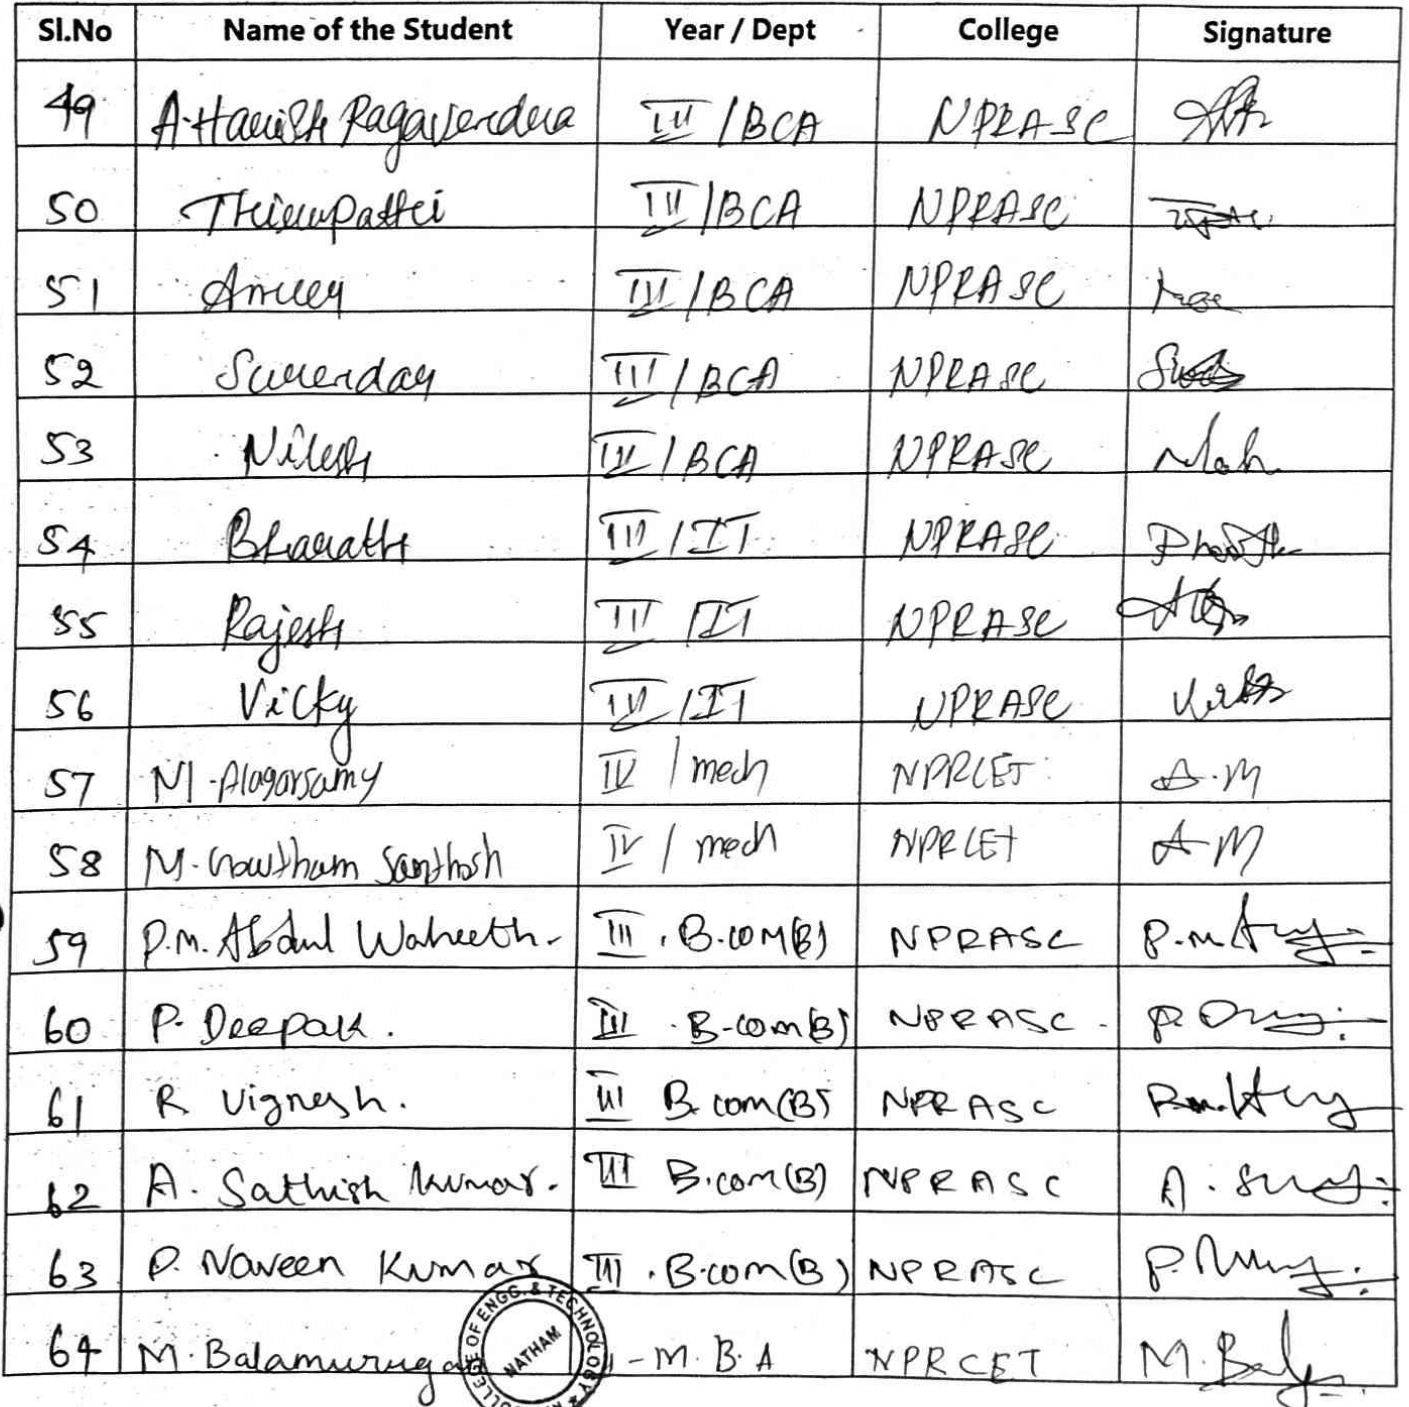 Sl.No Name of the Student Year / Dept College Signature
49 A.Harish Ragavendra III / BCA NPRASC
50 Thirupathi III / BCA NPRASC
51 III / BCA NPRASC
52 III / BCA NPRASC
53 Nilesh III / BCA NPRASC
54 Bharath III / IT NPRASC
55 Rajesh III / IT NPRASC
56 Vicky III / IT NPRASC
57 M.Alagarsamy IV / mech NPRCET A.M
58 M.Gowtham Santhosh IV / mech NPRCET A-M
59 P.M. Abdul Waheeth. III . B.com(B) NPRASC
60 P. Deepak. III . B-com(B) NPRASC
61 R Vignesh. III B.com(B) NPRASC
62 A. Sathish Kumar. III B.com(B) NPRASC
63 P. Naveen Kumar III . B.com(B) NPRASC
64 M. Balamurugan - M.B.A NPRCET
COLLEGE OF ENGG. & TECHNOLOGY
NATHAM